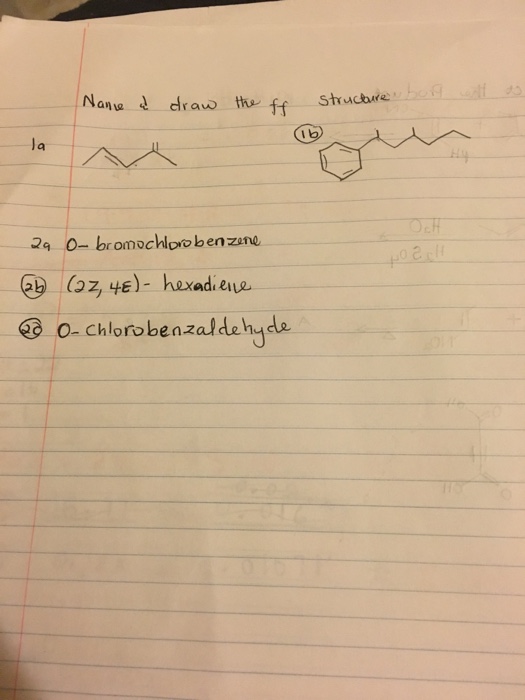 Name & draw the ff structure
1a
1b
2a O-bromochlorobenzene
2b (2Z, 4E)-hexadiene
2c O-chlorobenzaldehyde